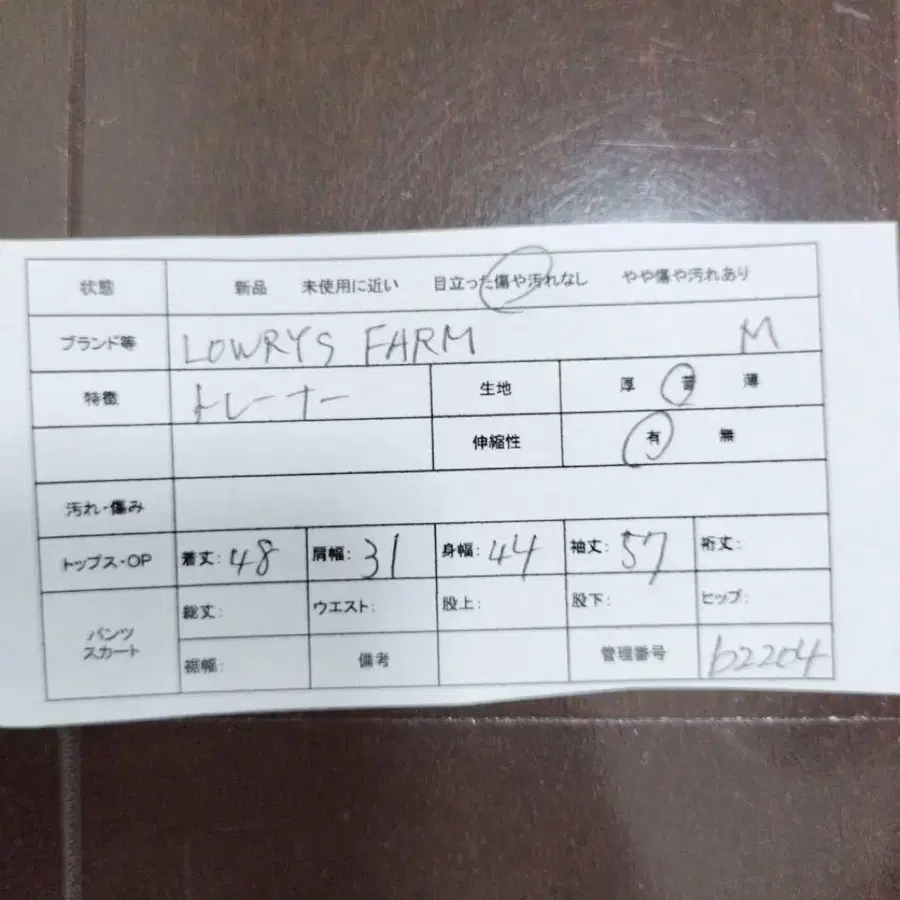 状態 新品 未使用に近い 目立った傷や汚れなし やや傷や汚れあり
ブランド等 LOWRYS FARM M
特徴 トレーナー 生地 厚 普 薄
伸縮性 有 無
汚れ・傷み
トップス・OP 着丈: 48 肩幅: 31 身幅: 44 袖丈: 57 裄丈:
パンツ スカート 総丈: ウエスト: 股上: 股下: ヒップ:
裾幅: 備考 管理番号 b2204